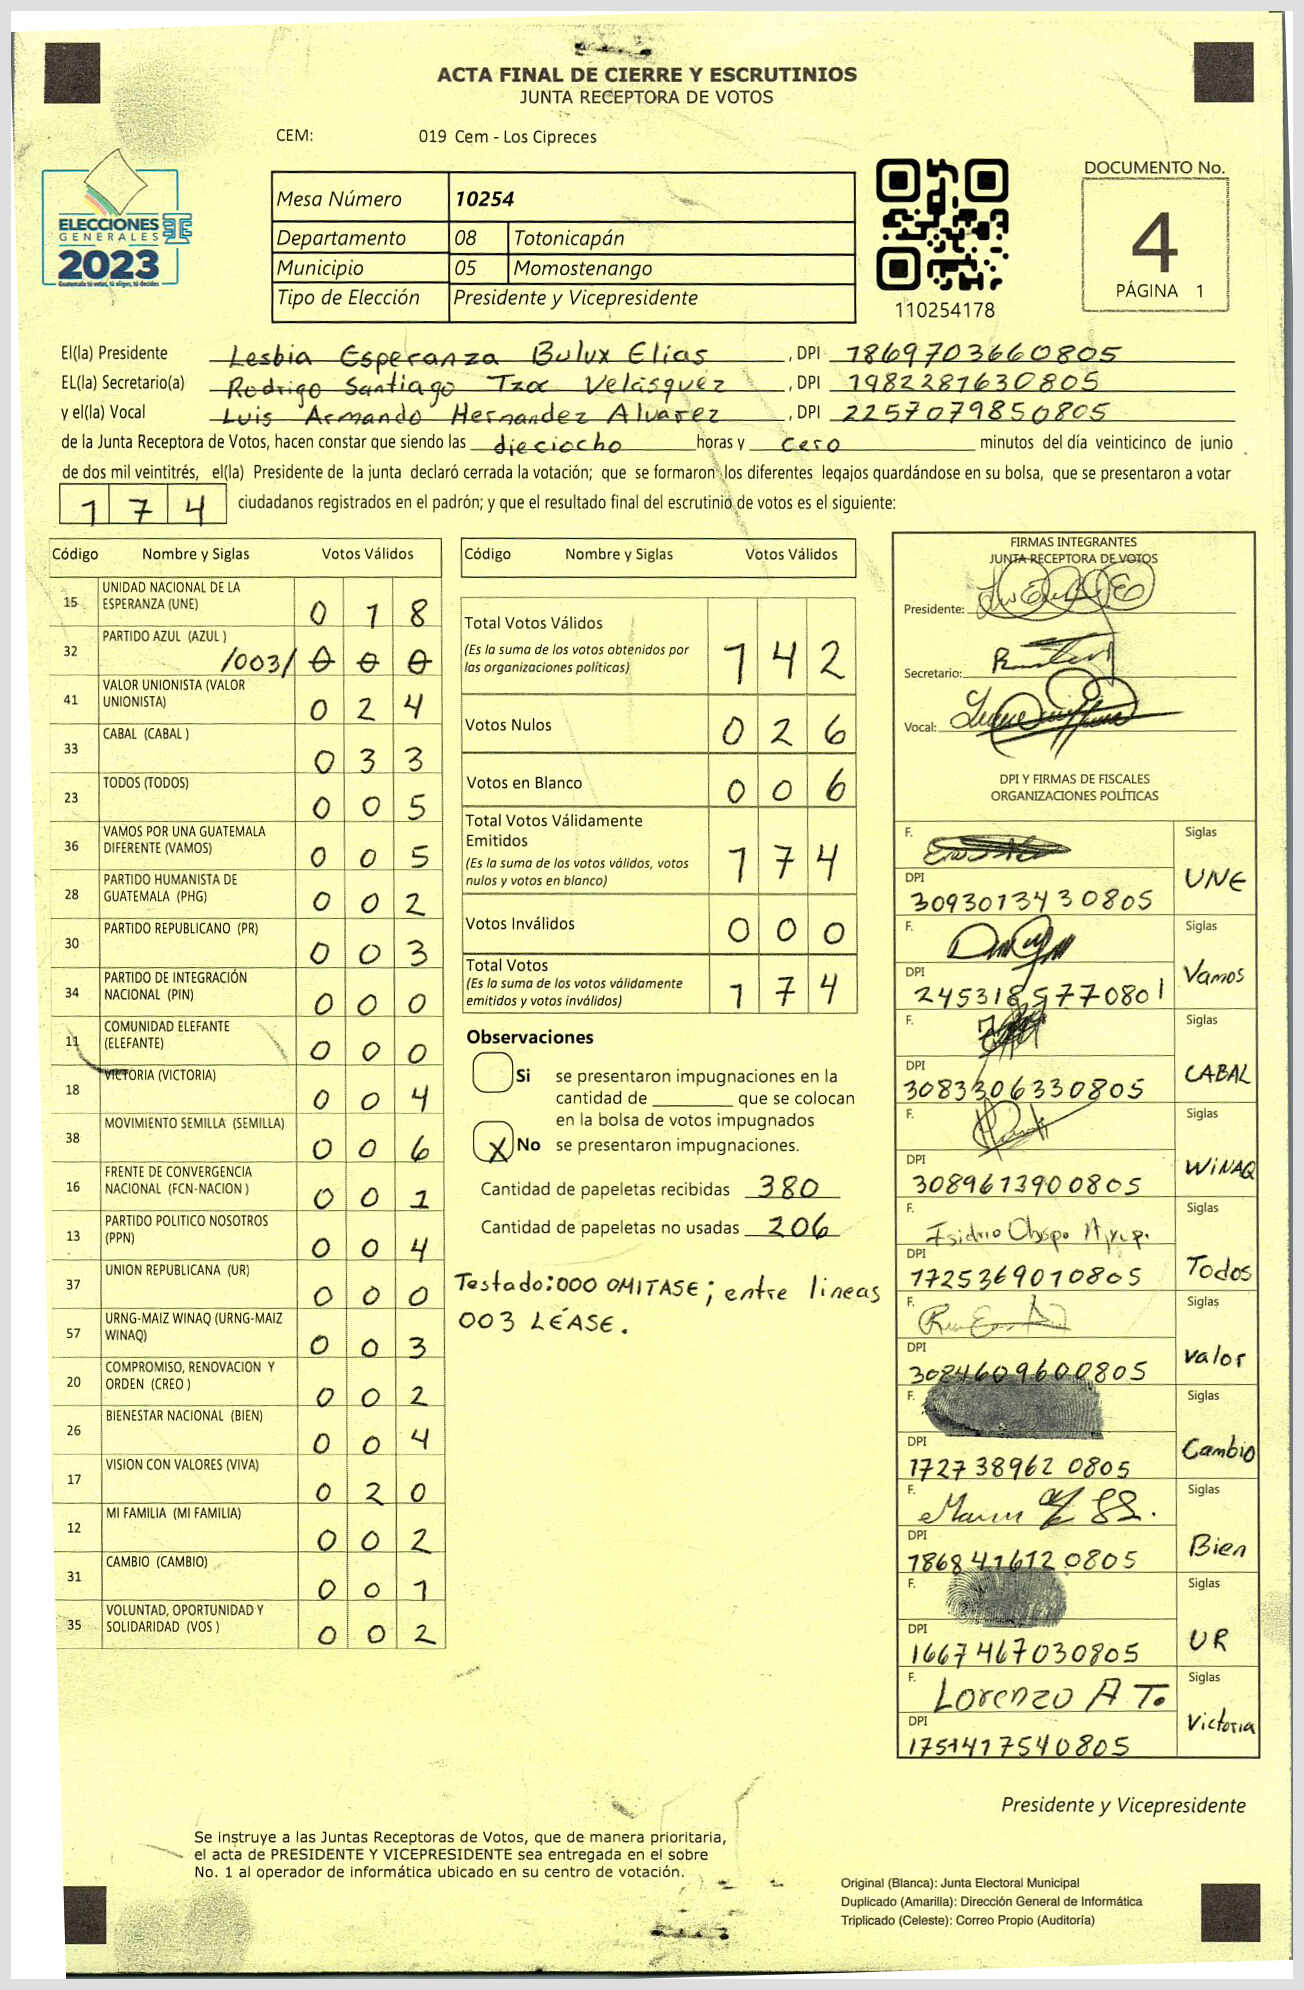 ACTA FINAL DE CIERRE Y ESCRUTINIOS
JUNTA RECEPTORA DE VOTOS
CEM: 019 Cem - Los Cipreces
ELECCIONES
GENERALES
2023
Guatemala tú votas, tú eliges, tú decides
Mesa Número 10254
Departamento 08 Totonicapán
Municipio 05 Momostenango
Tipo de Elección Presidente y Vicepresidente
110254178
DOCUMENTO No.
4
PÁGINA 1
El(la) Presidente Lesbia Esperanza Bulux Elias , DPI 1869703660805
EL(la) Secretario(a) Rodrigo Santiago Tzoc Velásquez , DPI 1982281630805
y el(la) Vocal Luis Armando Hernandez Alvarez , DPI 2257079850805
de la Junta Receptora de Votos, hacen constar que siendo las dieciocho horas y cero minutos del día veinticinco de junio
de dos mil veintitrés, el(la) Presidente de la junta declaró cerrada la votación; que se formaron los diferentes legajos quardándose en su bolsa, que se presentaron a votar
174 ciudadanos registrados en el padrón; y que el resultado final del escrutinio de votos es el siguiente:
Código Nombre y Siglas Votos Válidos
15 UNIDAD NACIONAL DE LA
ESPERANZA (UNE) 0 1 8
32 PARTIDO AZUL (AZUL )
/003/ 0 0 0
41 VALOR UNIONISTA (VALOR
UNIONISTA) 0 2 4
33 CABAL (CABAL ) 0 3 3
23 TODOS (TODOS) 0 0 5
36 VAMOS POR UNA GUATEMALA
DIFERENTE (VAMOS) 0 0 5
28 PARTIDO HUMANISTA DE
GUATEMALA (PHG) 0 0 2
30 PARTIDO REPUBLICANO (PR) 0 0 3
34 PARTIDO DE INTEGRACIÓN
NACIONAL (PIN) 0 0 0
11 COMUNIDAD ELEFANTE
(ELEFANTE) 0 0 0
18 VICTORIA (VICTORIA) 0 0 4
38 MOVIMIENTO SEMILLA (SEMILLA) 0 0 6
16 FRENTE DE CONVERGENCIA
NACIONAL (FCN-NACION ) 0 0 1
13 PARTIDO POLITICO NOSOTROS
(PPN) 0 0 4
37 UNION REPUBLICANA (UR) 0 0 0
57 URNG-MAIZ WINAQ (URNG-MAIZ
WINAQ) 0 0 3
20 COMPROMISO, RENOVACION Y
ORDEN (CREO ) 0 0 2
26 BIENESTAR NACIONAL (BIEN) 0 0 4
17 VISION CON VALORES (VIVA) 0 2 0
12 MI FAMILIA (MI FAMILIA) 0 0 2
31 CAMBIO (CAMBIO) 0 0 1
35 VOLUNTAD, OPORTUNIDAD Y
SOLIDARIDAD (VOS ) 0 0 2
Código Nombre y Siglas Votos Válidos
Total Votos Válidos
(Es la suma de los votos obtenidos por
las organizaciones políticas) 1 4 2
Votos Nulos 0 2 6
Votos en Blanco 0 0 6
Total Votos Válidamente
Emitidos
(Es la suma de los votos válidos, votos
nulos y votos en blanco) 1 7 4
Votos Inválidos 0 0 0
Total Votos
(Es la suma de los votos válidamente
emitidos y votos inválidos) 1 7 4
Observaciones
Si se presentaron impugnaciones en la
cantidad de ________ que se colocan
en la bolsa de votos impugnados
X No se presentaron impugnaciones.
Cantidad de papeletas recibidas 380
Cantidad de papeletas no usadas 206
Testado:000 OMITASE; entre lineas
003 LÉASE.
FIRMAS INTEGRANTES
JUNTA RECEPTORA DE VOTOS
Presidente:
Secretario:
Vocal:
DPI Y FIRMAS DE FISCALES
ORGANIZACIONES POLÍTICAS
F. Siglas
DPI 3093013430805 UNE
F. Siglas
DPI 2453185770801 Vamos
F. Siglas
DPI 3083306330805 CABAL
F. Siglas
DPI 3089613900805 WiNAQ
F. Isidro Siglas
DPI 1725369010805 Todos
F. Siglas
DPI 3084609600805 valor
F. Siglas
DPI 1727389620805 Cambio
F. Siglas
DPI 1868416120805 Bien
F. Siglas
DPI 1667467030805 UR
F. Lorenzo A T. Siglas
DPI 1751417540805 Victoria
Presidente y Vicepresidente
Se instruye a las Juntas Receptoras de Votos, que de manera prioritaria,
el acta de PRESIDENTE Y VICEPRESIDENTE sea entregada en el sobre
No. 1 al operador de informática ubicado en su centro de votación.
Original (Blanca): Junta Electoral Municipal
Duplicado (Amarilla): Dirección General de Informática
Triplicado (Celeste): Correo Propio (Auditoría)